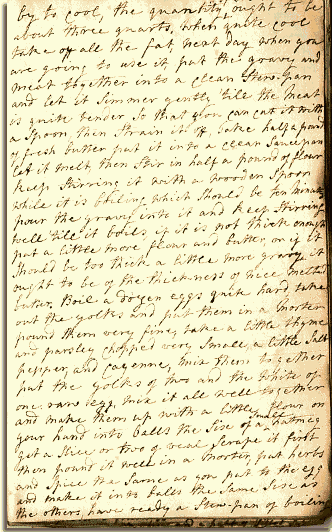 by to cool, the quantity ought to be
about three quarts, when quite cool
take off all the fat, next day when you
are going to use it put the gravy and
meat together into a clean Stew-pan
and let it Simmer gently 'till the meat
is quite tender so that you can cut it with
a Spoon, then Strain it off, take half a pound
of fresh butter put it into a clean Saucepan
let it melt, then Stir in half a pound of flour
keep Stirring it with a wooden Spoon
while it is boiling which Should be ten minutes
pour the gravy into it and keep Stirring
well 'till it boils, if it is not thick enough
put a little more flour and butter, or if it
Should be too thick a little more gravy it
ought to be of the thickness of nice melted
butter. Boil a dozen eggs quite hard take
out the yolks and put them in a Mortar
pound them very fine, take a little thyme
and parsley chopped very Small, a little Salt
pepper, and Cayenne, mix them together
put the yolks of two and the White of
one raw egg, mix it all well together
and make them up with a little flour on
your hand into balls the Size of a Small nutmeg
get a Slice or two of veal Scrape it first
then pount it well in a Mortar, put herbs
and Spice the Same as you put to the egg
and make it into balls the Same Size as
the others, have ready a Stew-pan of boiling